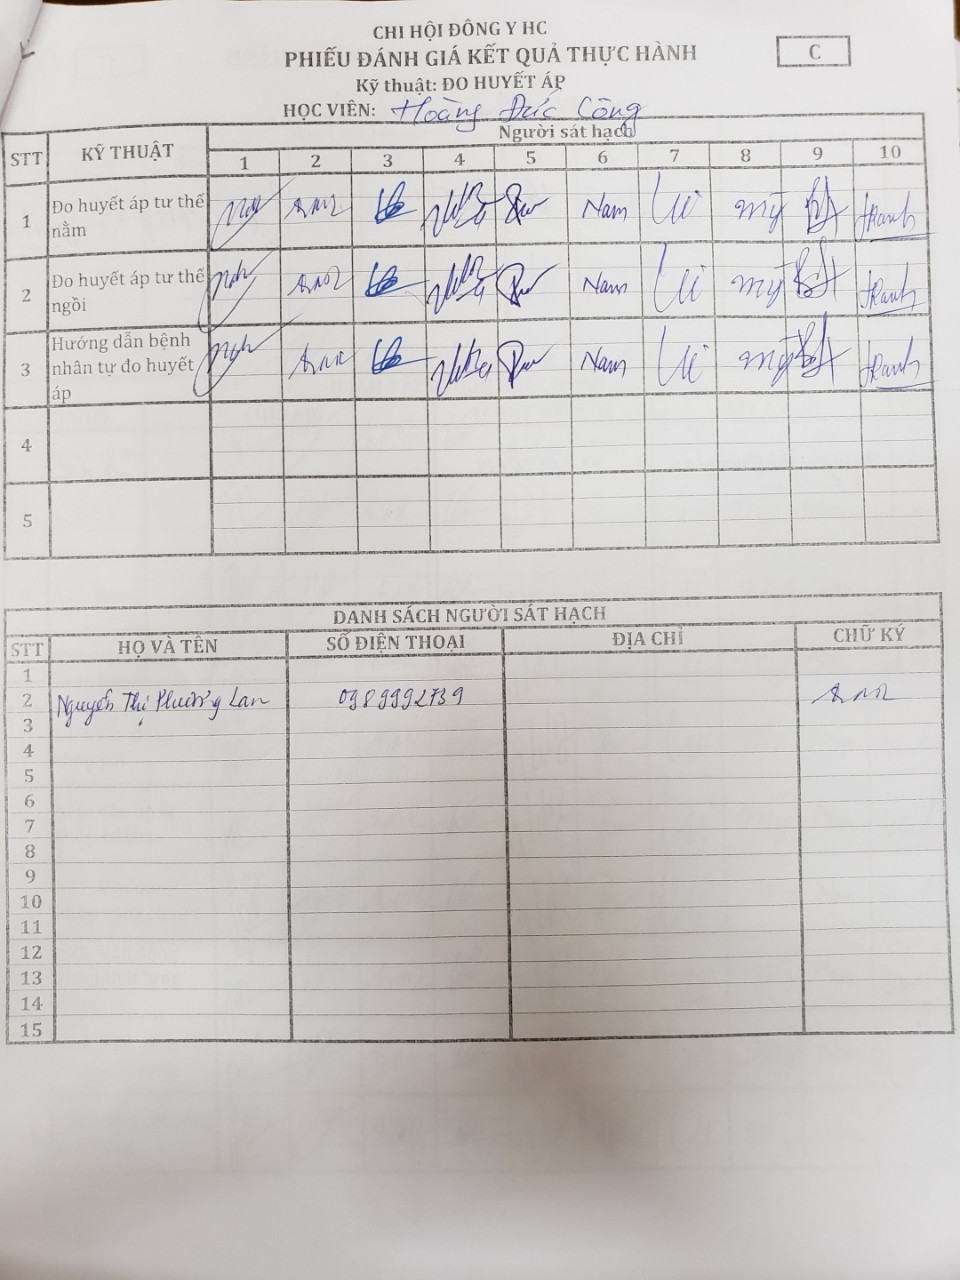 CHI HỘI ĐÔNG Y HC
PHIẾU ĐÁNH GIÁ KẾT QUẢ THỰC HÀNH
C
Kỹ thuật: ĐO HUYẾT ÁP
HỌC VIÊN: Hoàng Đức Công
STT KỸ THUẬT Người sát hạch
1 2 3 4 5 6 7 8 9 10
1 Đo huyết áp tư thế nằm Nam Mỹ thanh
2 Đo huyết áp tư thế ngồi Nam Mỹ thanh
3 Hướng dẫn bệnh nhân tự đo huyết áp Nam Mỹ thanh
4
5
DANH SÁCH NGƯỜI SÁT HẠCH
STT HỌ VÀ TÊN SỐ ĐIỆN THOẠI ĐỊA CHỈ CHỮ KÝ
1
2 Nguyễn Thị Phương Lan 0989992739
3
4
5
6
7
8
9
10
11
12
13
14
15